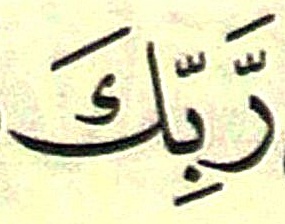 رَّبِّكَ